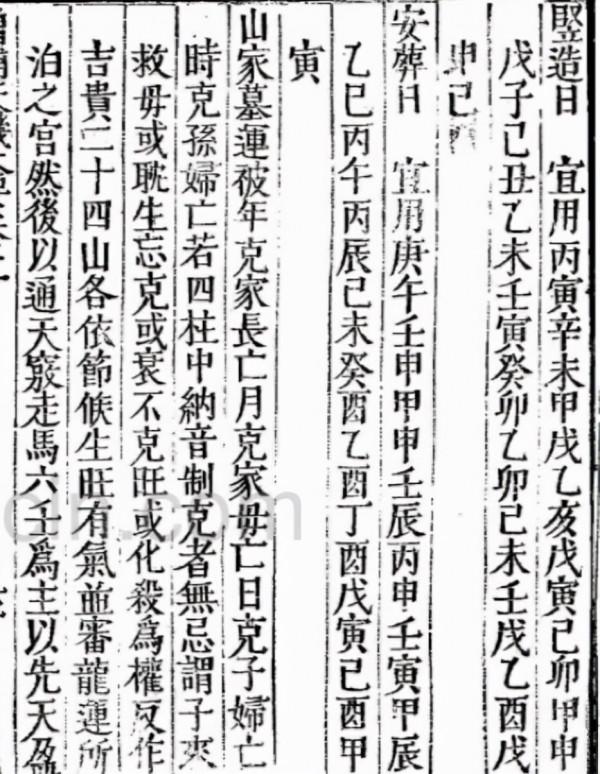 豎造日 宜用丙寅辛未甲戌乙亥戊寅己卯甲申
戊子己丑乙未壬寅癸卯乙卯己未壬戌乙酉戊
申己
安葬日 宜用庚午壬申甲申壬辰丙申壬寅甲辰
乙巳丙午丙辰己未癸酉乙酉丁酉戊寅己酉甲
寅
山家墓運被年克家長亡月克家毋亡日克子婦亡
時克孫婦亡若四柱中納音制克者無忌謂子來
救毋或耽生忘克或衰不克旺或化殺爲權反作
吉貴二十四山各依節候生旺有氣並審龍運所
泊之宮然後以通天竅走馬六壬爲主以先天